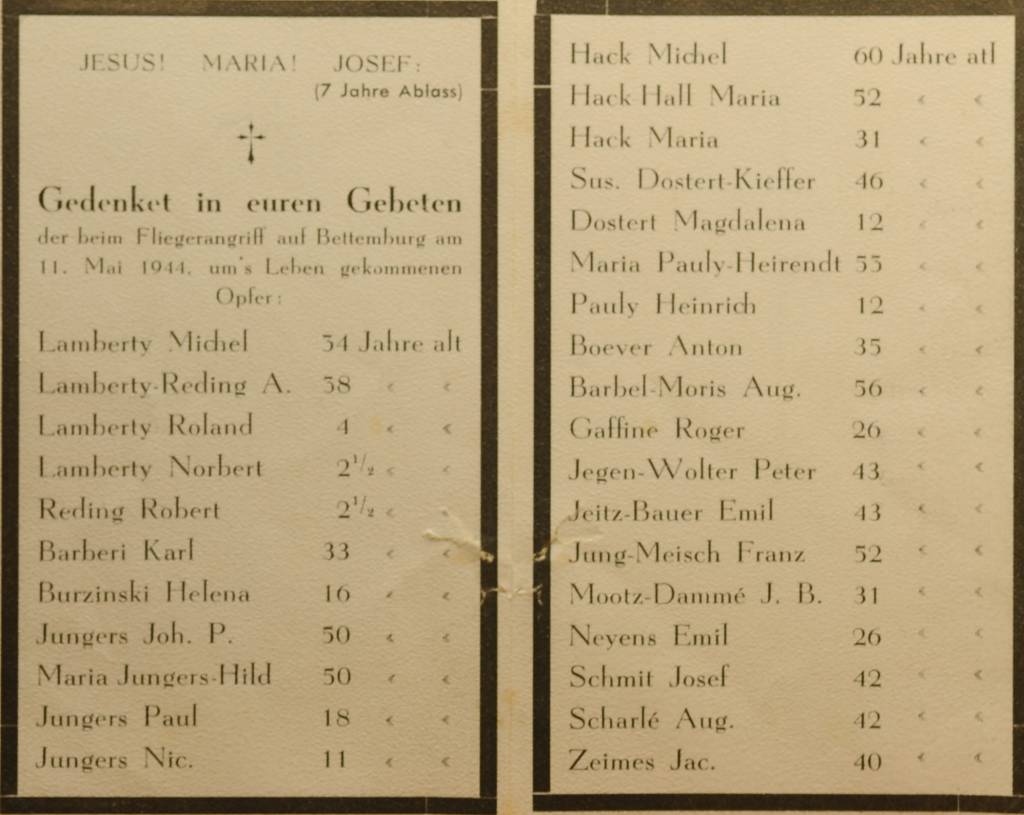 JESUS! MARIA! JOSEF:
(7 Jahre Ablass)
Gedenket in euren Gebeten
der beim Fliegerangriff auf Bettemburg am
11. Mai 1944. um's Leben gekommenen
Opfer:
Lamberty Michel 34 Jahre alt
Lamberty-Reding A. 38 « «
Lamberty Roland 4 « «
Lamberty Norbert 2 1/2 « «
Reding Robert 2 1/2 «
Barberi Karl 33 « «
Burzinski Helena 16 « «
Jungers Joh. P. 50 « «
Maria Jungers-Hild 50 « «
Jungers Paul 18 « «
Jungers Nic. 11 « «
Hack Michel 60 Jahre atl
Hack-Hall Maria 52 « «
Hack Maria 31 « «
Sus. Dostert-Kieffer 46 « «
Dostert Magdalena 12 « «
Maria Pauly-Heirendt 53 « «
Pauly Heinrich 12 « «
Boever Anton 35 « «
Barbel-Moris Aug. 56 « «
Gaffine Roger 26 « «
Jegen-Wolter Peter 43 « «
Jeitz-Bauer Emil 43 « «
Jung-Meisch Franz 52 « «
Mootz-Dammé J. B. 31 « «
Neyens Emil 26 « «
Schmit Josef 42 « «
Scharlé Aug. 42 « «
Zeimes Jac. 40 « «